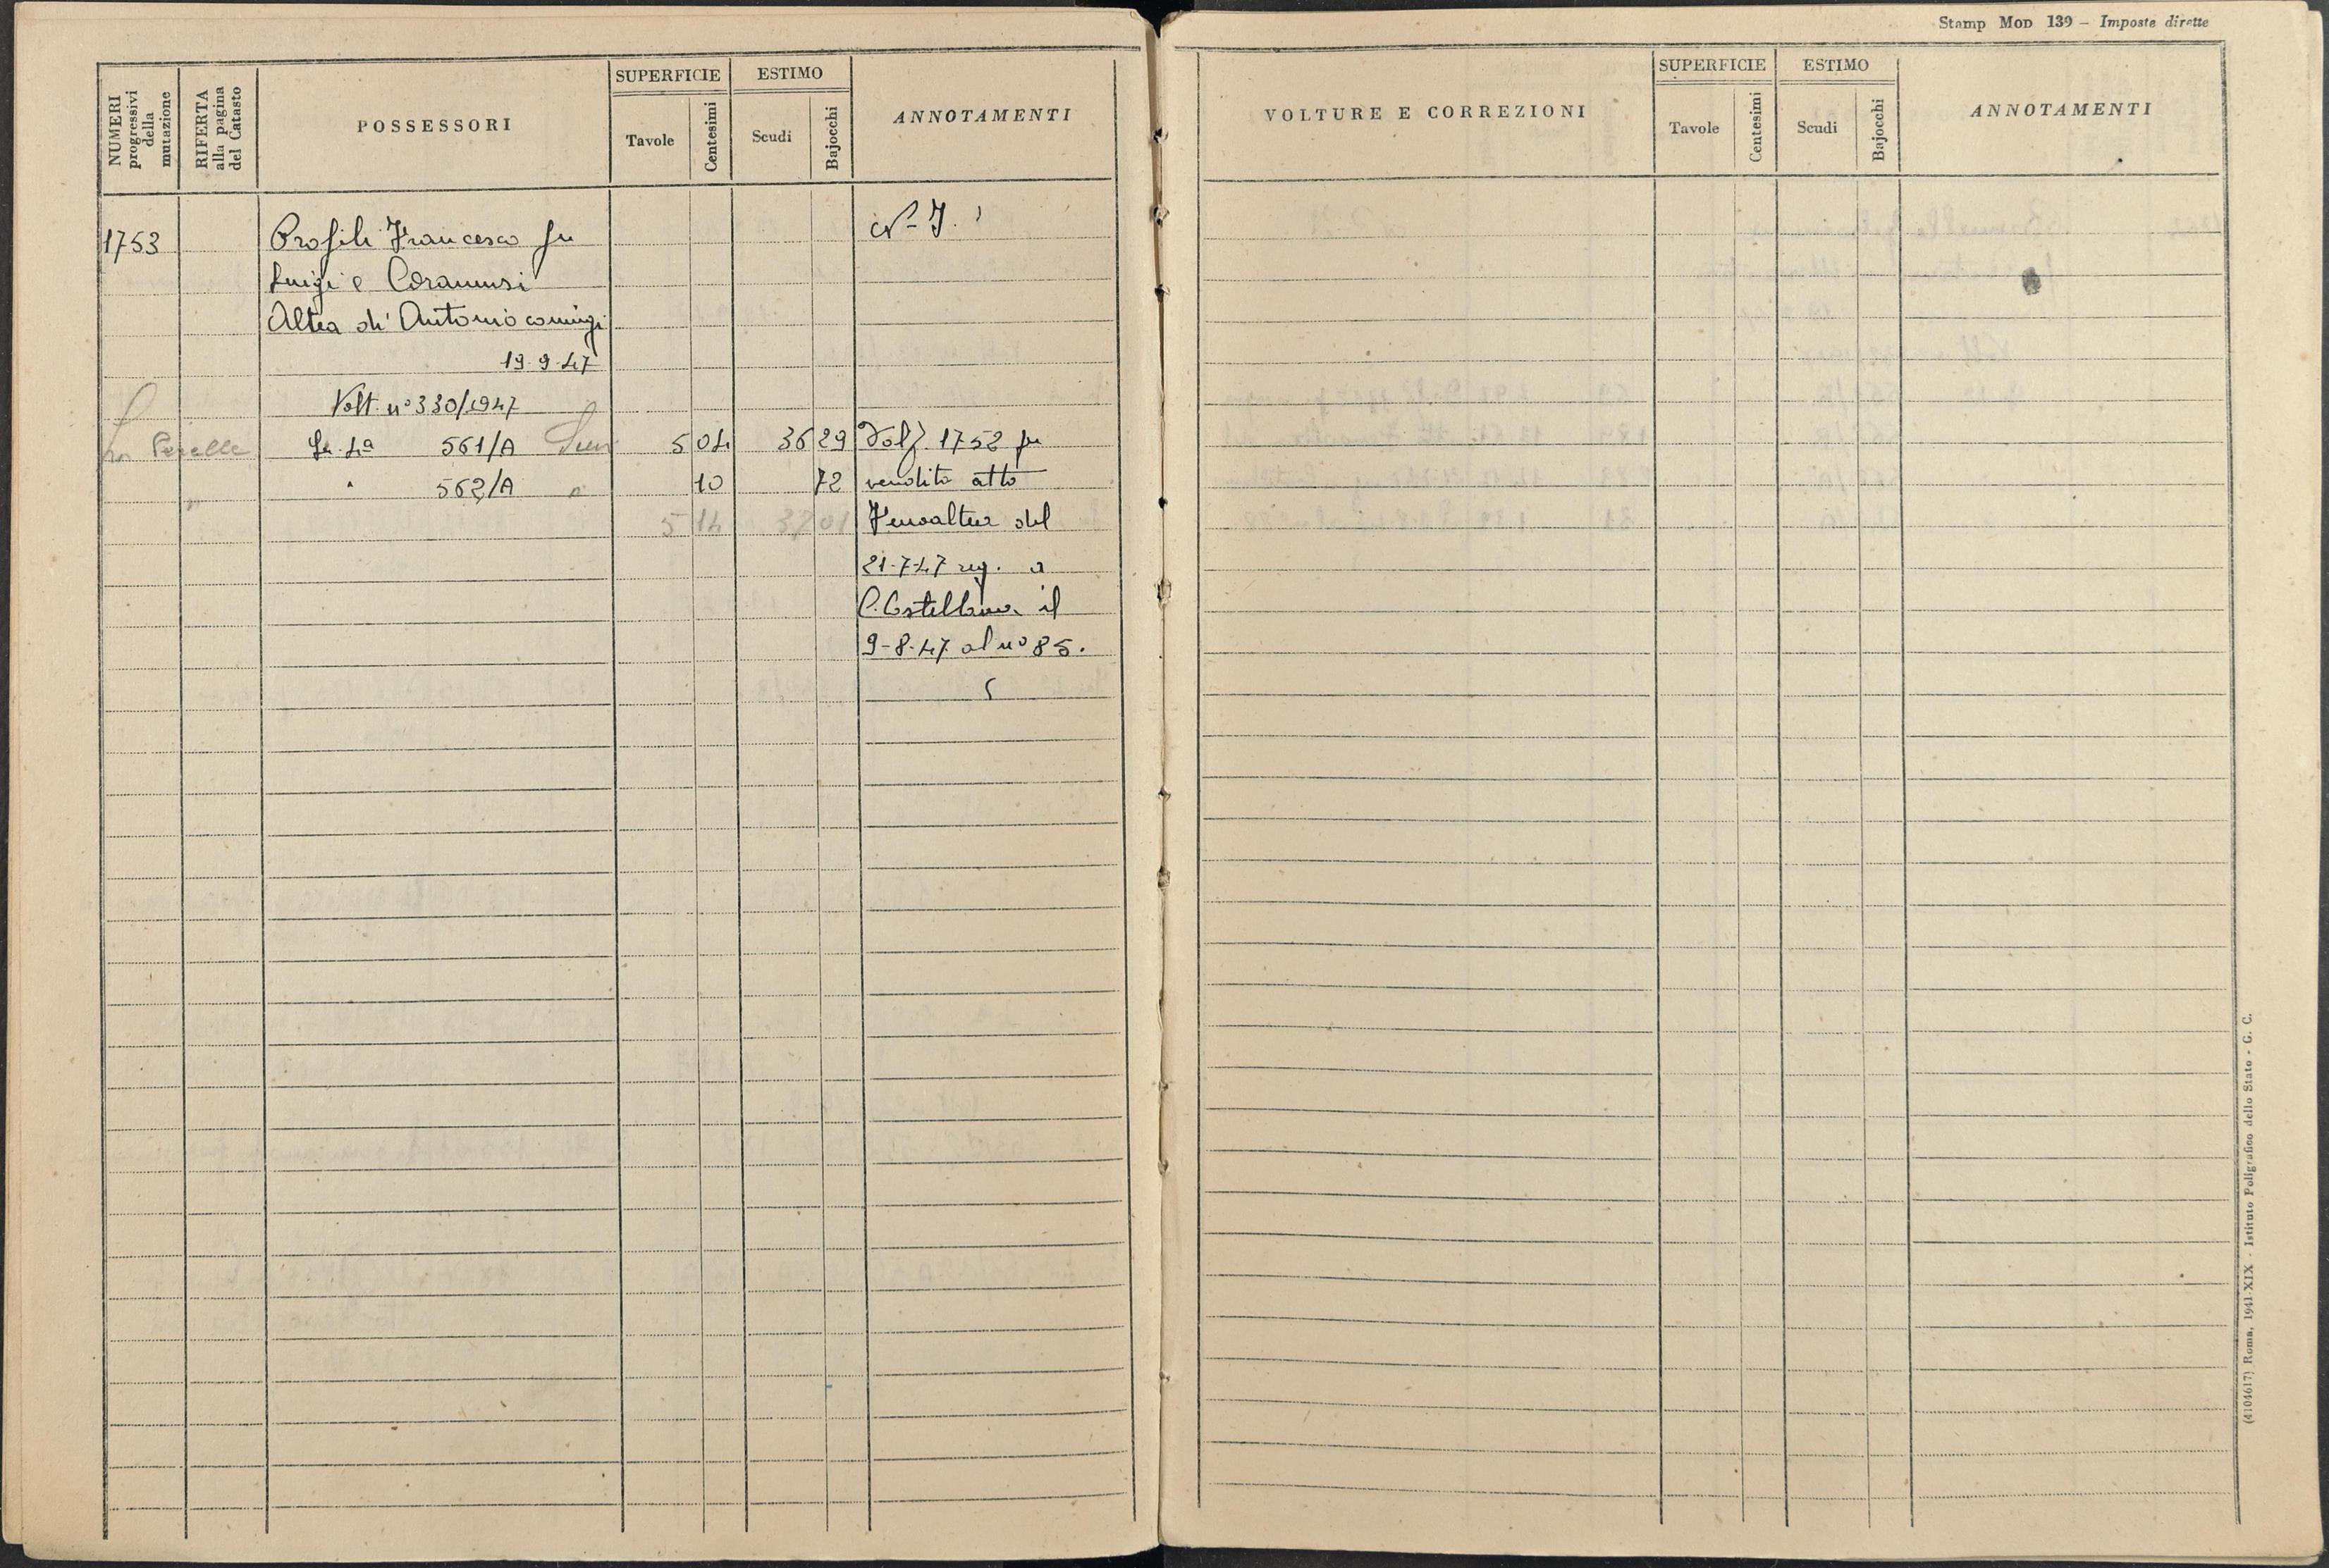 NUMERI progressivi della mutazione
RIFERTA alla pagina del Catasto
POSSESSORI
SUPERFICIE
Tavole
Centesimi
ESTIMO
Scudi
Bajocchi
ANNOTAMENTI
1753
Profili Francesco fu
Luigi e
Altea di Antonio coniugi
19.9.47
Volt. n° 330/1947
561/A 5 04 36 29
562/A " 10 72
5 14 37 01
N.I.
1752 per
vendita atto
del
21-7-47 reg. a
C. Castellana il
9-8-47 al n° 85.
Stamp Mod 139 – Imposte dirette
VOLTURE E CORREZIONI
SUPERFICIE
Tavole
Centesimi
ESTIMO
Scudi
Bajocchi
ANNOTAMENTI
(4104617) Roma, 1941-XIX - Istituto Poligrafico dello Stato - G. C.